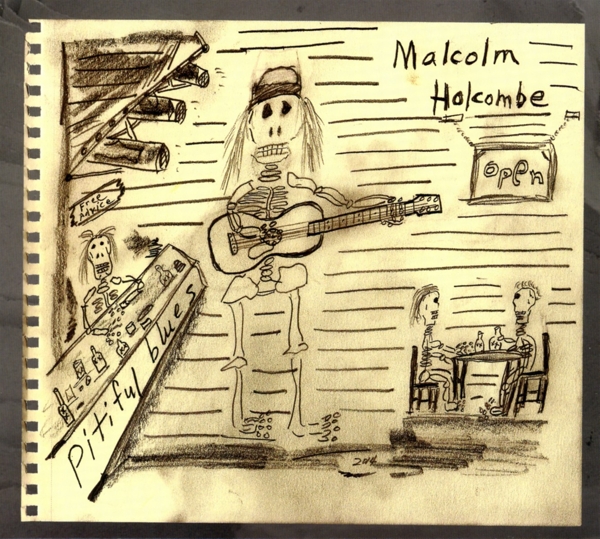 Malcolm
Holcombe
open
FREE
ADVICE
Pitiful blues